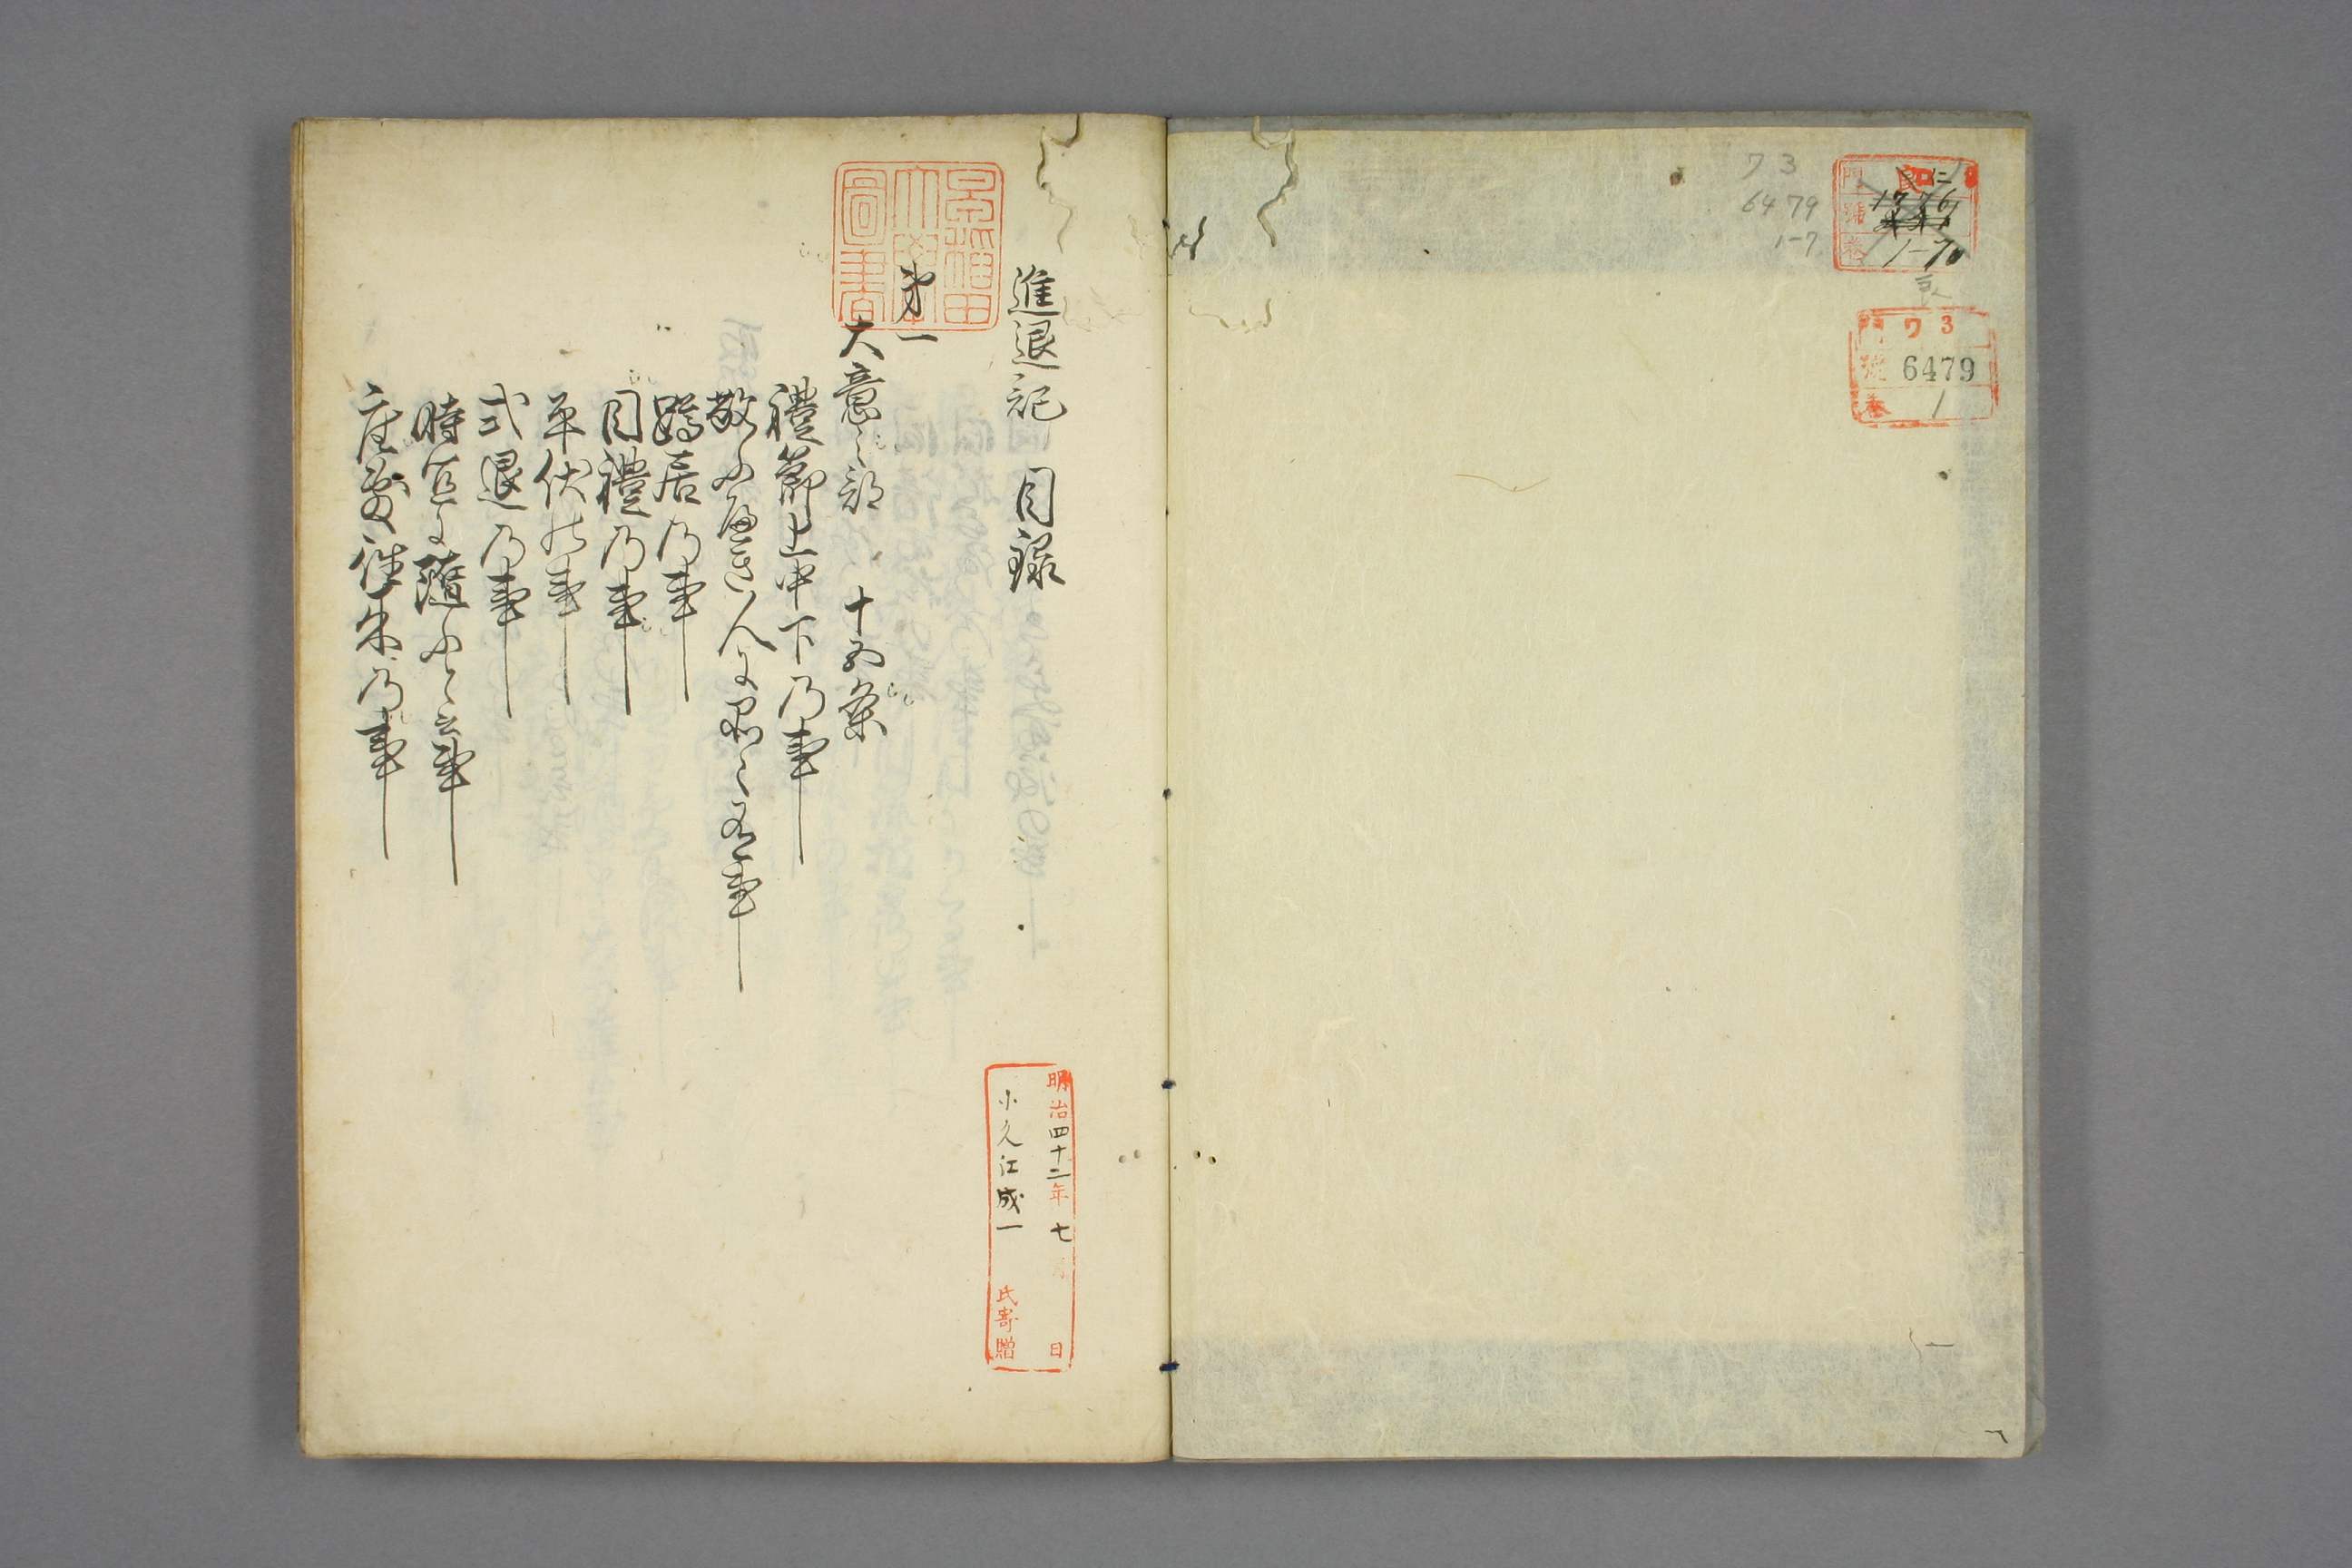 ワ3
6479
1-7
仁
1-7
門 ワ3
號 6479
巻 1
進退記 目録
早稲田大學圖書
第一
大意之部 十五条
禮節上中下乃事
蹲居乃事
目禮乃事
平伏の事
式退乃事
時宜に随ふと云事
座敷往来乃事
明治四十二年七月 日
小久江成一 氏寄贈